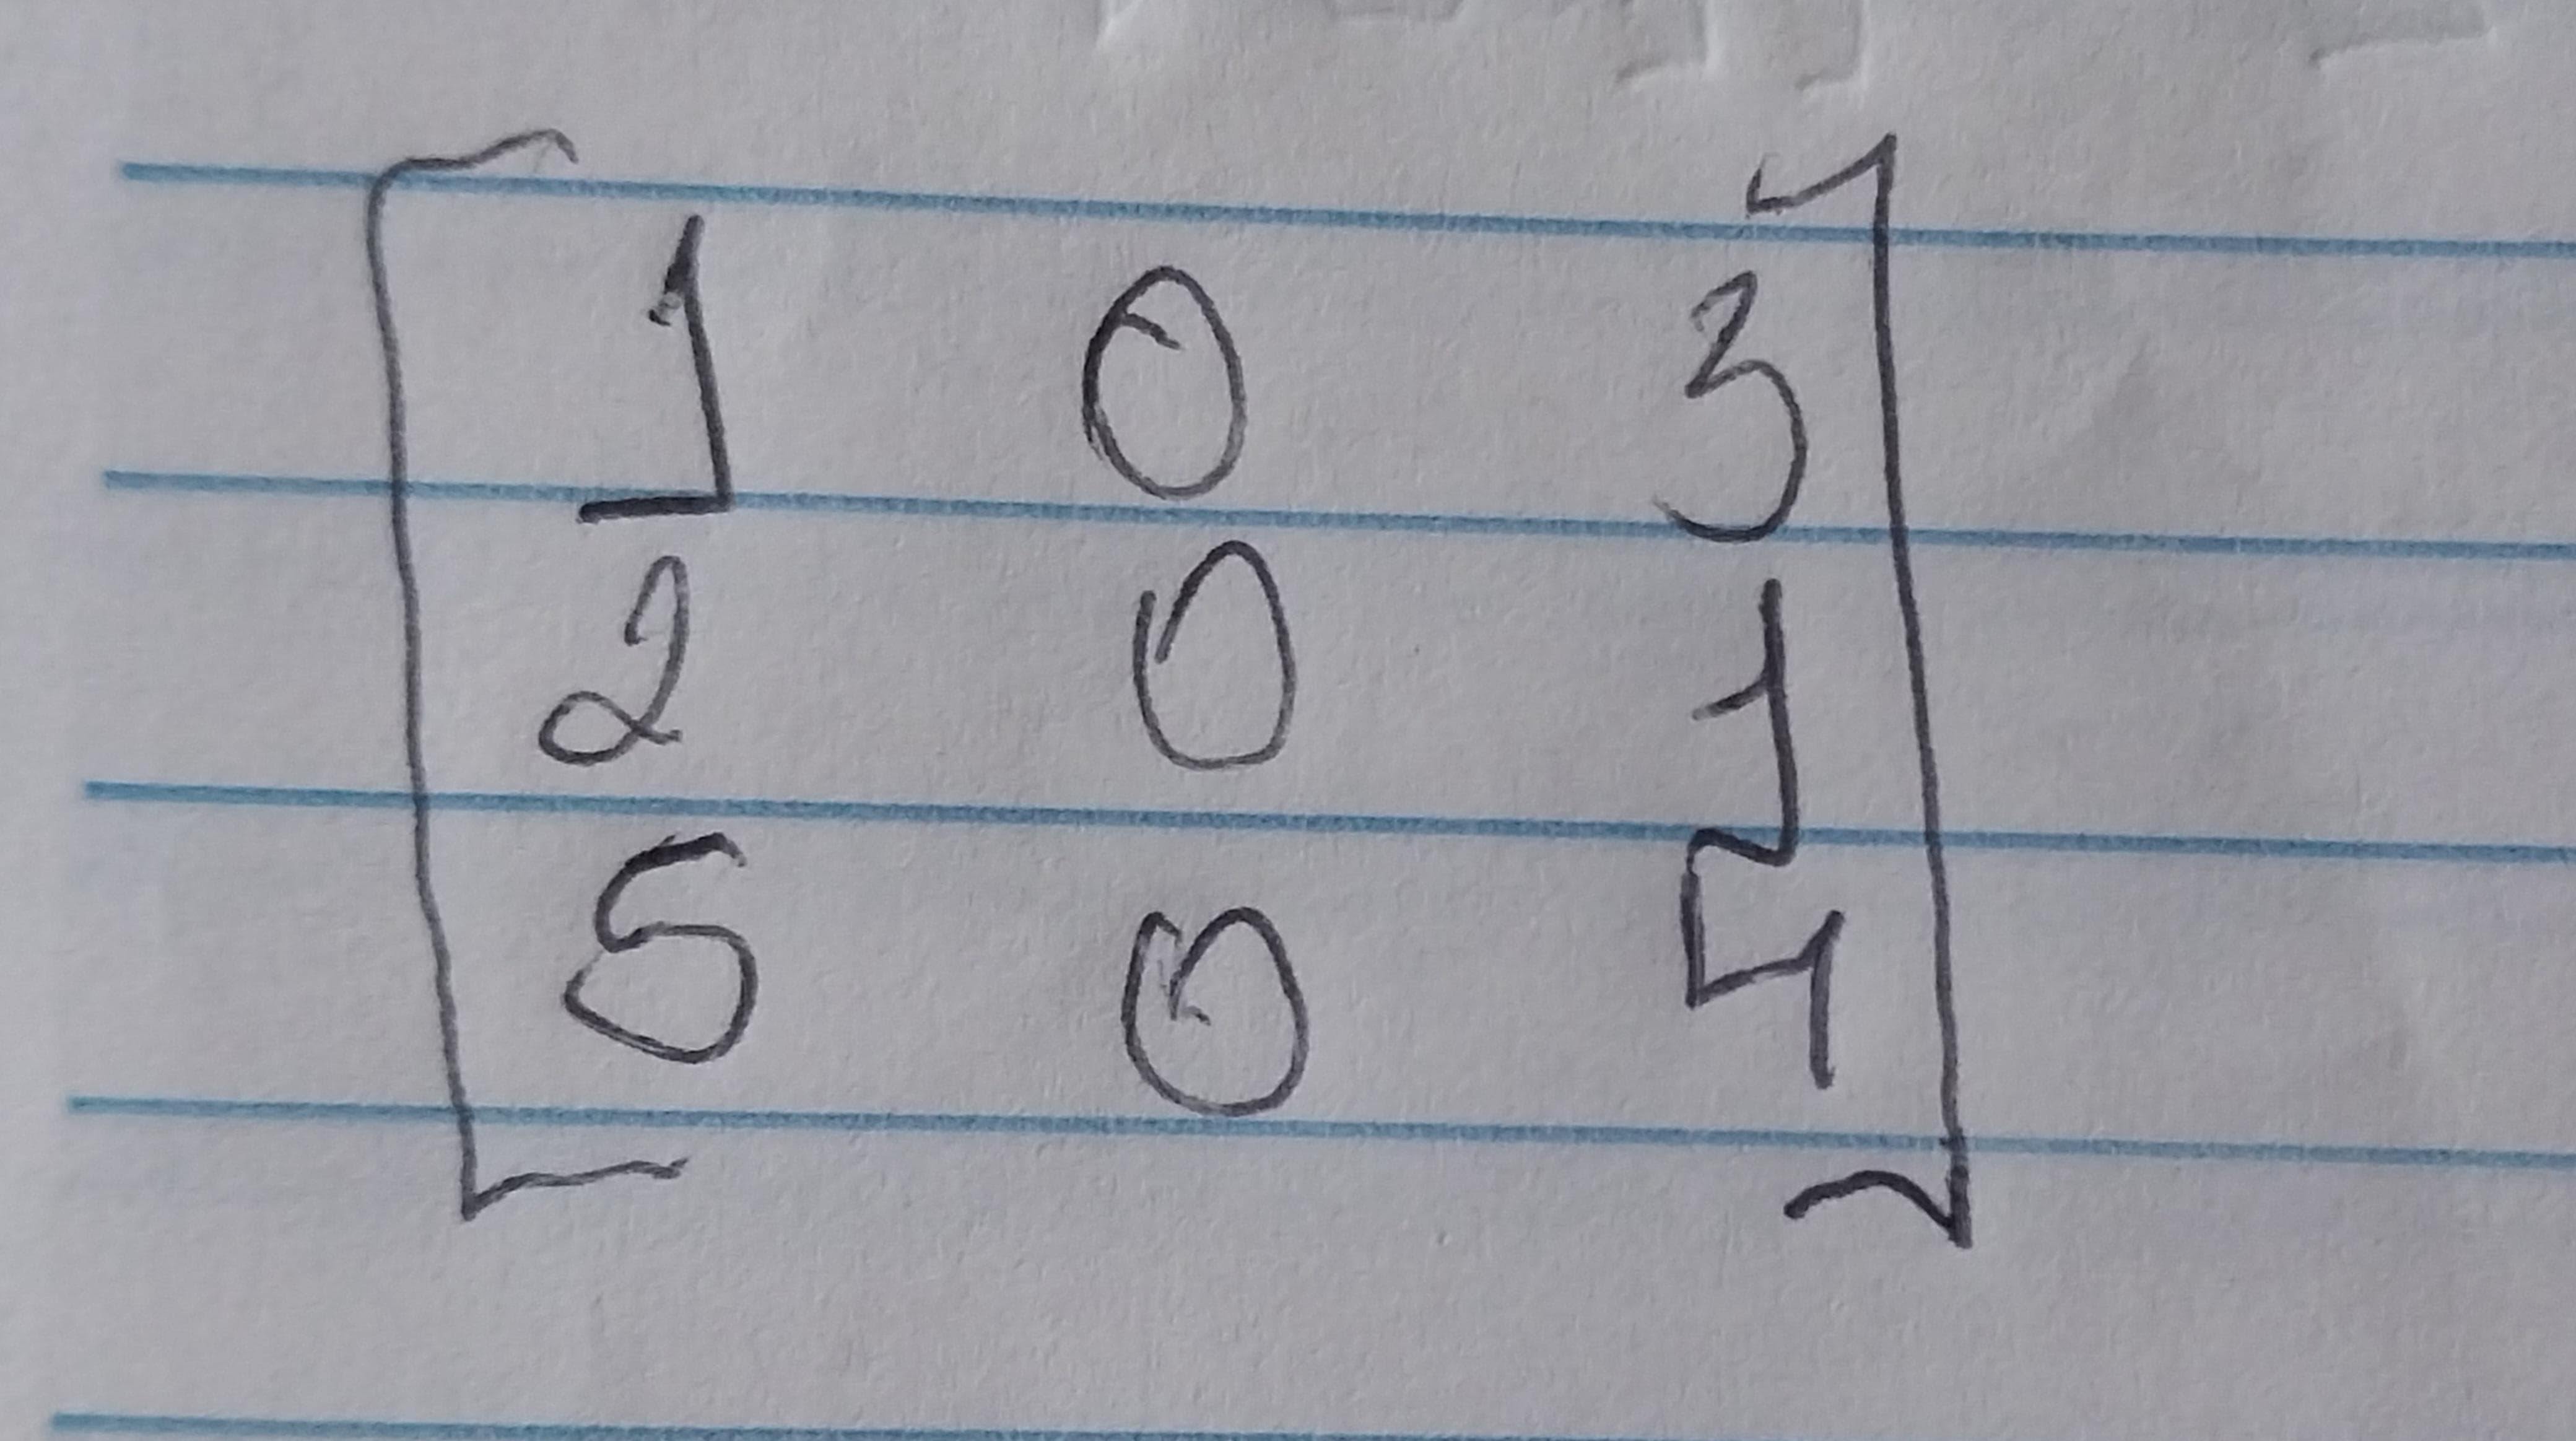 1 0 3
2 0 1
5 0 4